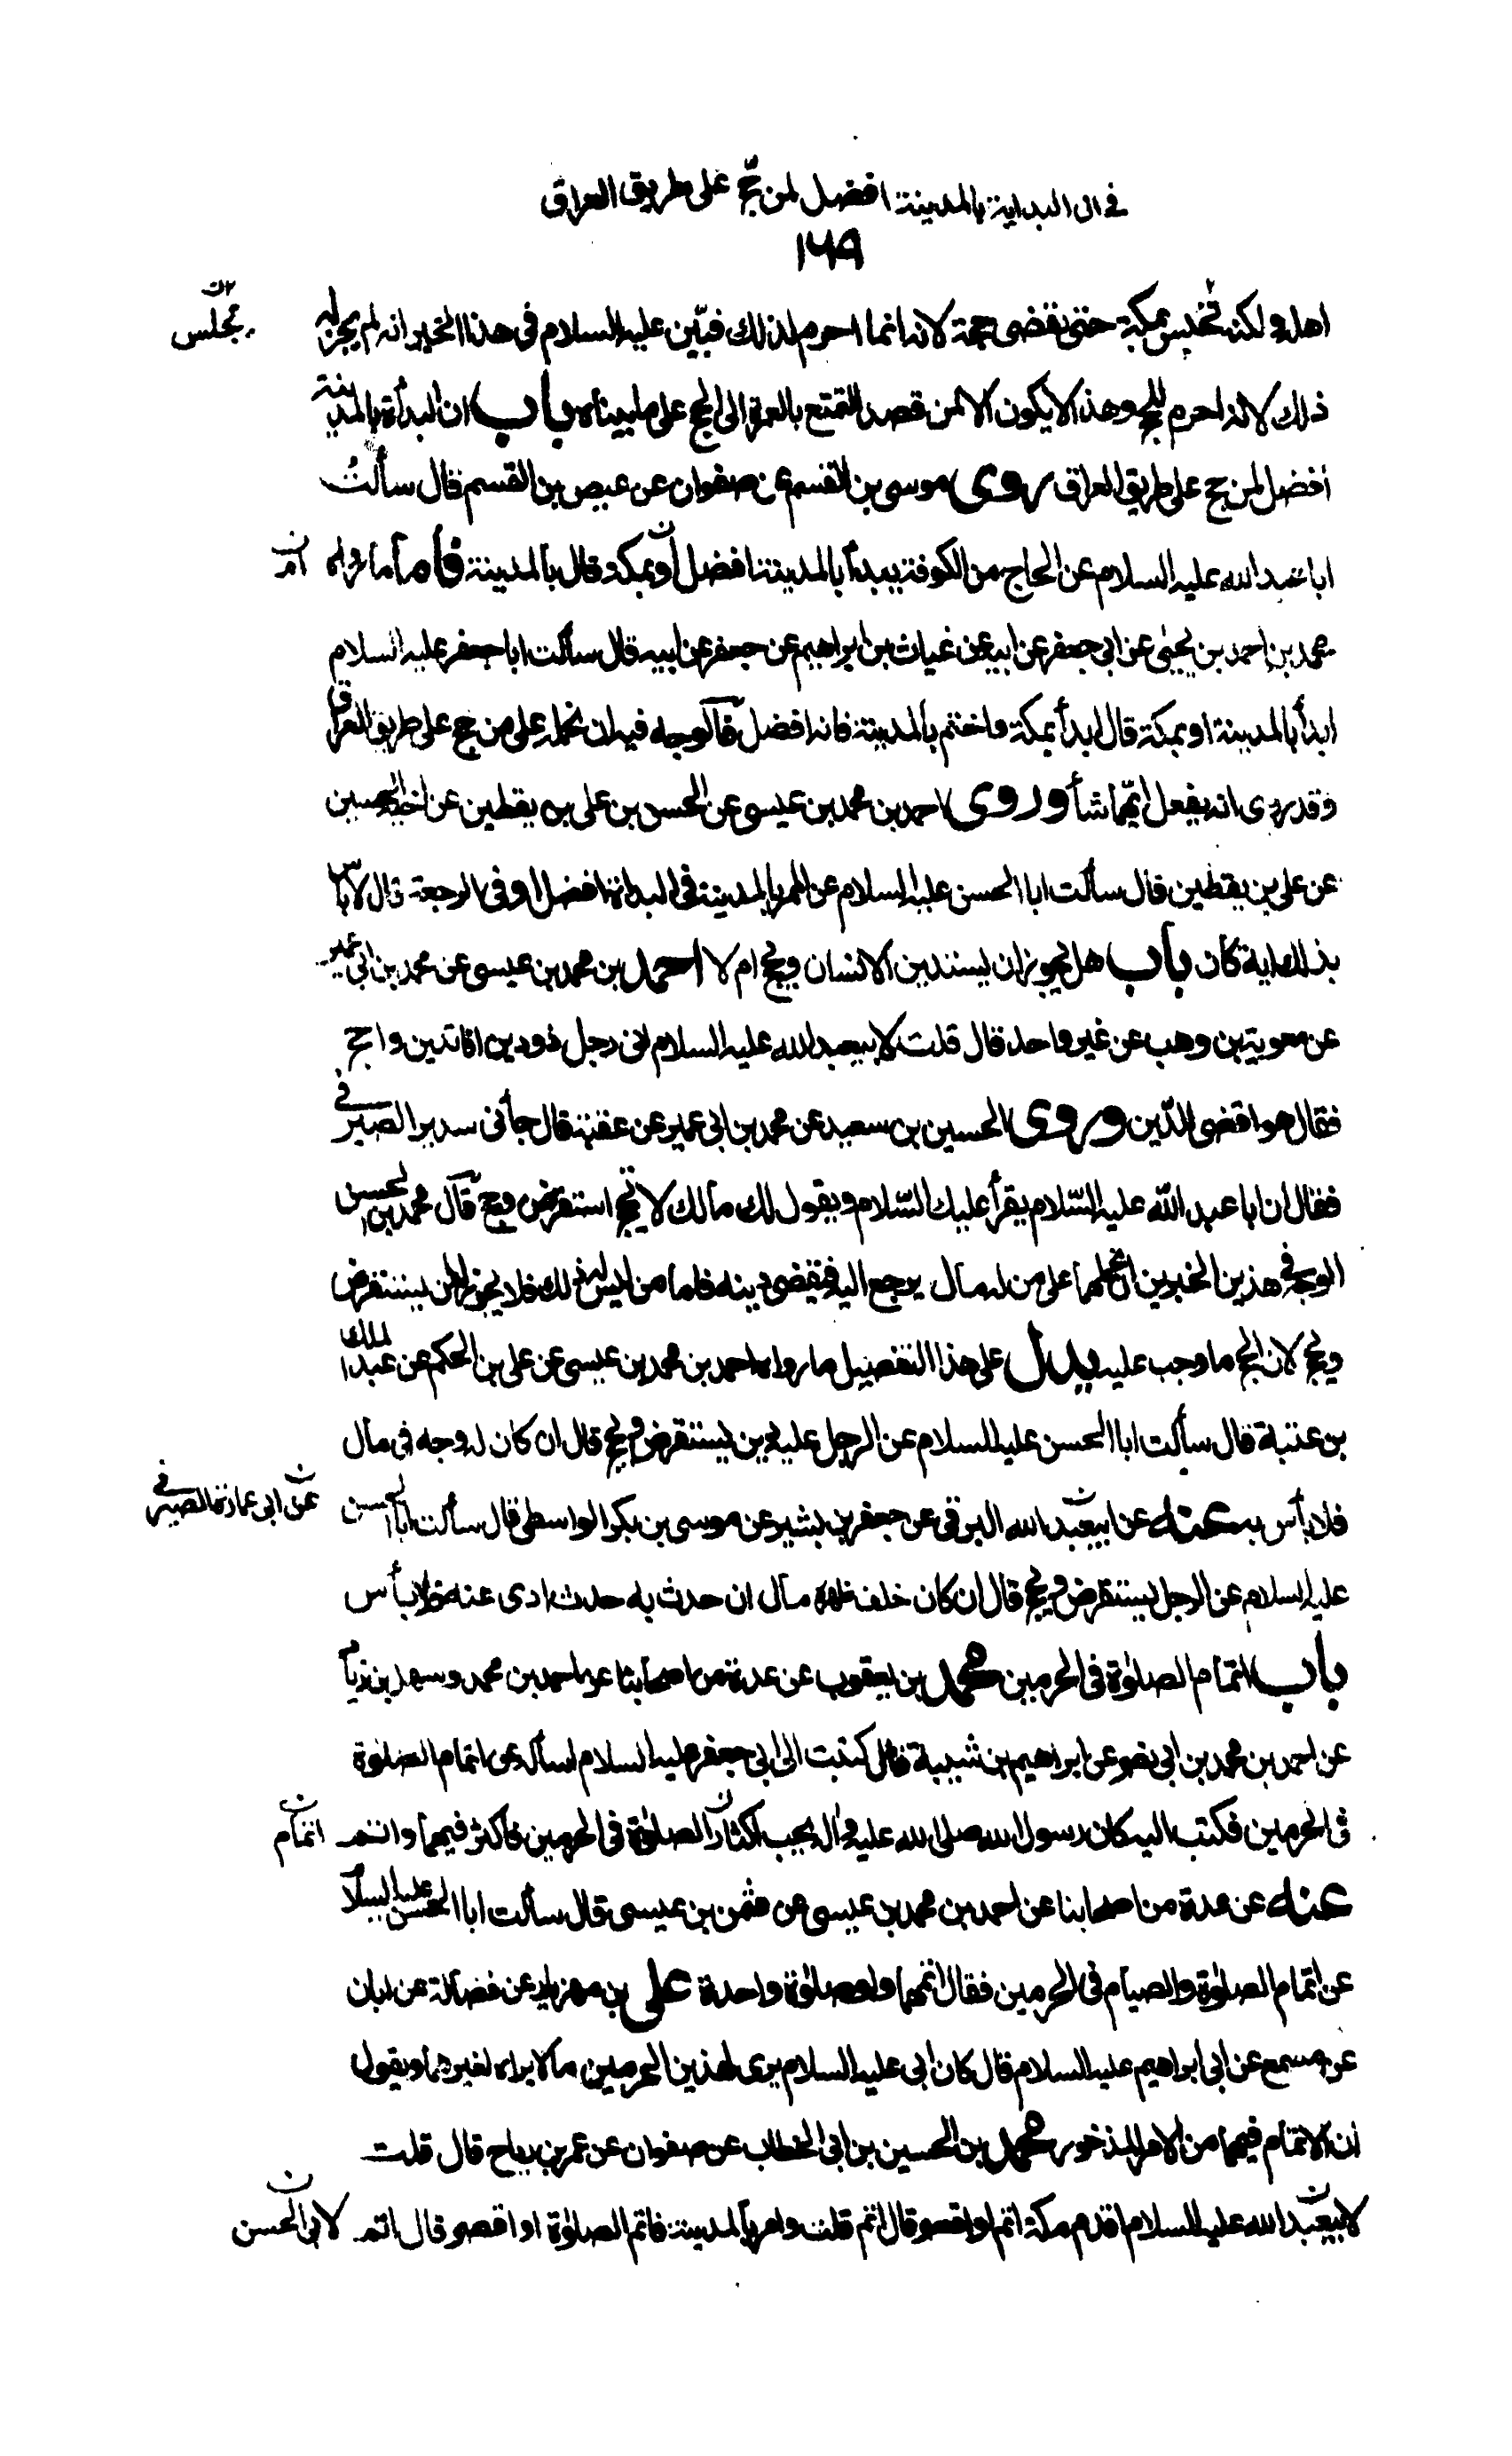 في ان البداية بالمدينة افضل لمن حجّ على طريق العراق
١٦٩
اهله ولكنه تحتبس بمكة حتى يقضى حجه لانه انما احرم لذلك فبيّن عليه السلام فى هذا الخبر انه لم يجز له
يجلس
ذلك لانه احرم للحج وهذا لا يكون الا لمن قصد التمتع بالعمرة الى الحج على ما بيناه باب ان البدأة بالمدينة
افضل لمن حج على طريق العراق روى موسى بن القسم عن صفوان عن عيص بن القسم قال سألتُ
ابا عبد الله عليه السلام عن الحاج من الكوفة يبدأ بالمدينة افضل او بمكة قال بالمدينة فاما ما رواه
ام
محمد بن احمد بن يحيى عن ابى جعفر عن ابيه عن غياث بن ابراهيم عن جعفر عن ابيه قال سألت ابا جعفر عليه السلام
ابدأ بالمدينة او بمكة قال ابدأ بمكة واختم بالمدينة فانه افضل فالوجه فيه ان نحمله على من حج على طريق العراق
وقد روى انه يفعل ايّما شأ وروى احمد بن محمد بن عيسى عن الحسن بن على بن يقطين عن اخيه الحسين
عن على بن يقطين قال سألت ابا الحسن عليه السلام عن الممر بالمدينة فى البداة افضل او فى الرجعة قال لا باس
بذلك اية كان باب هل يجوز ان يستدين الانسان ويحج ام لا احمد بن محمد بن عيسى عن محمد بن ابى عمير
عن معوية بن وهب عن غير واحد قال قلت لابيعبد الله عليه السلام انى رجل ذو دين افاتدين واحج
فقال هو اقضى للدّين وروى الحسين بن سعيد عن محمد بن ابى عمير عن عقبة قال جأنى سدير الصيرفى
فقال ان ابا عبد الله عليه السّلام يقرأ عليك السّلام ويقول لك مالك لا تحج استقرض وحج قال محمد بن الحسن
الوجه فى هذين الخبرين ان نحملهما على من له مال يرجع اليه فيقضى دينه فاما من ليس له ذلك فلا يجوز له ان يستقرض
ويحج لان الحج ما وجب عليه يدل على هذا التفصيل ما رواه احمد بن محمد بن عيسى عن على بن الحكم عن عبد الملك
بن عتبة قال سألت ابا الحسن عليه السلام عن الرجل عليه دين يستقرض ويحج قال ان كان له وجه فى مال
فلا بأس به عنه عن ابيعبد الله البرقى عن جعفر بن بشير عن موسى بن بكر الواسطى قال سألت ابا الحسن
عن ابى عمارة الصيرفى
عليه السلام عن الرجل يستقرض ويحج قال ان كان خلف ظهره مال ان حدث به حدث ادى عنه فلا بأس
باب اتمام الصلوة فى الحرمين محمد بن يعقوب عن عدة من اصحابنا عن احمد بن محمد وسهل بن زياد
عن احمد بن محمد بن ابى نصر عن ابراهيم بن شيبة قال كتبت الى ابى جعفر عليه السلام اسأله عن اتمام الصلوة
فى الحرمين فكتب اليه كان رسول الله صلى الله عليه واله يحب اكثار الصلوة فى الحرمين فاكثر فيهما واتم
اتمام
عنه عن عدة من اصحابنا عن احمد بن محمد بن عيسى عن عثمن بن عيسى قال سألت ابا الحسن عليه السلام
عن اتمام الصلوة والصيام فى الحرمين فقال اتمها ولو صلوة واحدة على بن مهزيار عن فضالة عن ابان
عن مسمع عن ابى ابراهيم عليه السلام قال كان ابى عليه السلام يرى لهذين الحرمين مالا يراه لغيرهما ويقول
ان الاتمام فيهما من الامر المذخور محمد بن الحسين بن ابى الخطاب عن صفوان عن عمر بن رياح قال قلت
لابيعبد الله عليه السلام اقدم مكة اتم او اقصر قال اتم قلت وامر بالمدينة فاتم الصلوة او اقصر قال اتم
لابى الحسن